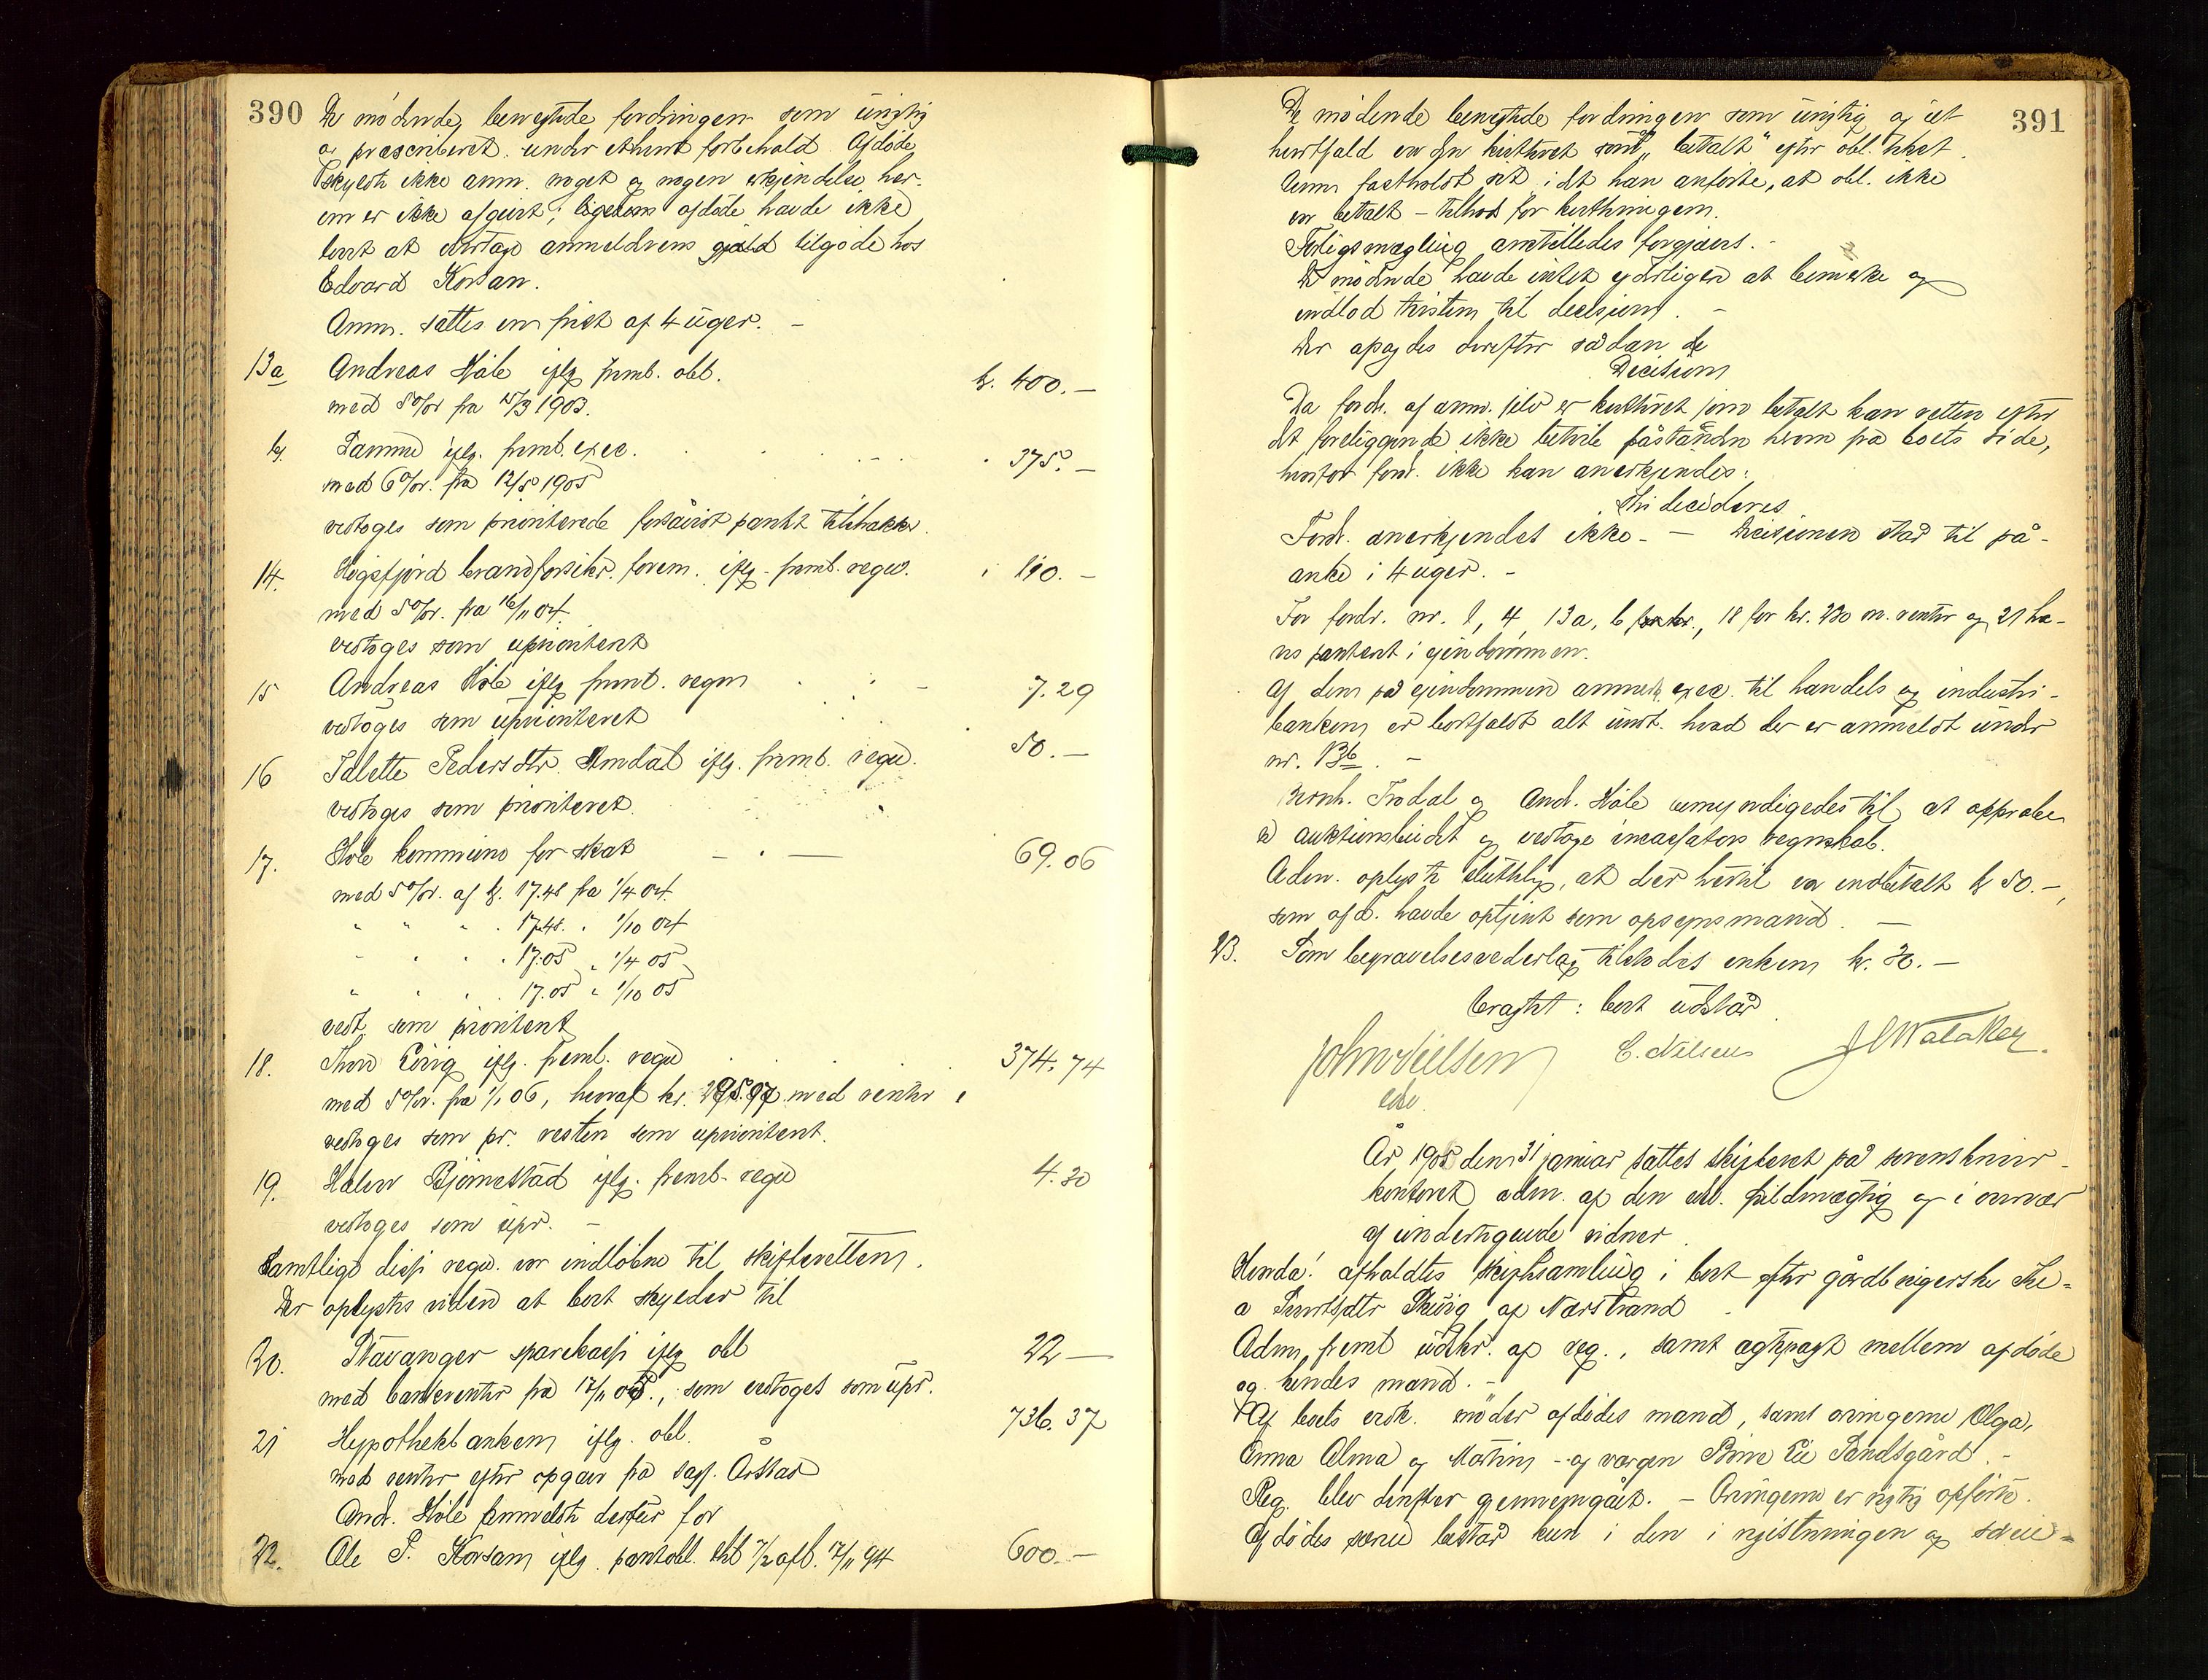 390
De mødende benegtede fordringen som urigtig
og præscriberet under ethvert forbehold. Afdøde
skyldte ikke anm. noget og nogen erkjendelse her-
om er ikke afgivet; ligesom afdøde havde ikke
lovet at overtage anmelderens gjæld tilgode hos
Edvard Korsan.
Anm. sattes en frist af 4 uger. –
13a Andreas Høle iflg. fremb. obl. k. 400.–
med 5 % fra 15/3 1903.
b. Samme iflg. fremb. exec. 375.–
med 6 %. fra 12/5 1905
vedtoges som prioriterede forsåvidt pantet tilstrækker.
14. Høgsfjord brandforsikr. foren. iflg. fremb. regn. 190.–
med 5 %. fra 16/11 04.
vedtoges som uprioritert
15 Andreas Høle iflg. fremb. regn 7.29
vedtoges som uprioriteret
16 Talette Pedersdtr. Amdal iflg. fremb. regn. 50.–
vedtoges som prioriteret.
17. Høle kommune for skat 69.06
med 5 %. af k. 17.48 fra 1/4 04.
" " " " 17.48. " 1/10 04
" " " " 17.05 " 1/4 05
" " " " 17.05 " 1/10 05
vedt. som prioritert
18. Thore iflg. fremb. regn 374.74
med 5 %. fra 1/1 06, heraf kr. med renter
vedtoges som pr. resten som uprioritert.
19. Halvor Bjørnestad iflg. fremb. regn 4.20
vedtoges som upr. –
Samtlige disse regn. var indløbne til skifteretten.
Der oplystes viden at boet skylder til
20. Stavanger sparekasse iflg obl 22 –
med bankrenter fra 12/11 05., som vedtoges som upr.
21 Hypothekbanken iflg. obl. 736.37
med renter efter opgave fra sagf. Årstad
And. Høle fremmeldte derfor for
22. Ole P. Korsan iflg. pantobl. dat 7/2 afl. 12/11 94 600.–
391
De mødende benegtede fordringen som urigtig og i et
hvertfald er den kvitteret som "betalt" efter obl. tilst.
Anm fastholdt det, idet han anførte, at obl. ikke
er betalt – tiltrods for kvitteringen.
Forligsmægling anstilledes forgjæves. –
De mødende havde intet yderligere at bemerke og
indlod tvisten til decision. –
Der afsagdes derefter sådan de
Decision
Da fordr. af anm. selv er kvitteret som betalt kan retten efter
det foreliggende ikke betvile påstanden herom fra boets side,
hvorfor ford. ikke kan anerkjendes:
Thi decideres
Ford. anerkjendes ikke. – Decisionen står til på-
anke i 4 uger. –
For fordr. nr. 1, 4, 13a, b 18 for kr. 230 m. renter og 21 ha-
ves panteret i eiendommen.
Af den på eiendommen anmeldte exec. til handels og industri-
banken er bortfaldt alt undt. hvad der er anmeldt under
nr. 13b. –
Bernh. Frodal og And. Høle bemyndigedes til at approbe-
re auktionsbudet og vedtage incassators regnskab.
Adm. oplyste sluttelig, at der hertil er indbetalt k 50.–,
som afd. havde optjent som opsynsmand. –
23. Som begravelsesvederlag tilstodes enken kr. 20.–
bragt: boet udstår
John Nielsen C. Nilsen J. Walaker
edv.
År 1905 den 31 januar sattes skifteret på sorenskriver-
kontoret adm. af den edsv. fuldmægtig og i overvær
af undertegnede vidner
Hvorda! afholdtes skiftesamling i boet efter gårdbrugerske The-
a af Nærstrand –
Adm. fremt. udskr. af reg., samt ægtepagt mellem afdøde
og hendes mand. –
Af boets vedk. møder afdødes mand, samt arvingerne Olga,
Anna Alma og Martin – og vergen Eie Sandsgård. –
Reg. blev derefter gjennemgået. – Arvingerne er rigtig opført.
Afdødes særeie består kun i den i registreringen og særeie-